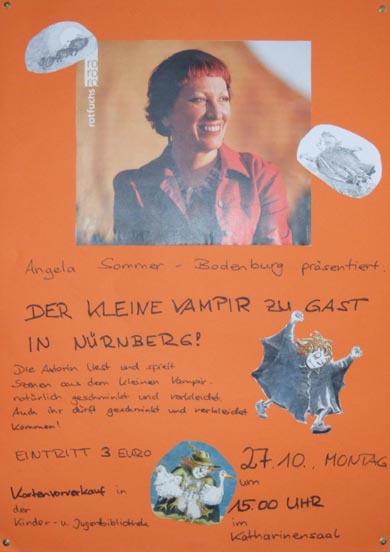 rotfuchs
Angela Sommer - Bodenburg präsentiert:
DER KLEINE VAMPIR ZU GAST
IN NÜRNBERG!
Die Autorin liest und spielt
Szenen aus dem kleinen Vampir.
natürlich geschminkt und verkleidet.
Auch ihr dürft geschminkt und verkleidet
kommen!
EINTRITT 3 EURO
Kartenvorverkauf in
der
Kinder- u. Jugendbibliothek
27.10., MONTAG
um
15.00 UHR
im
Katharinensaal